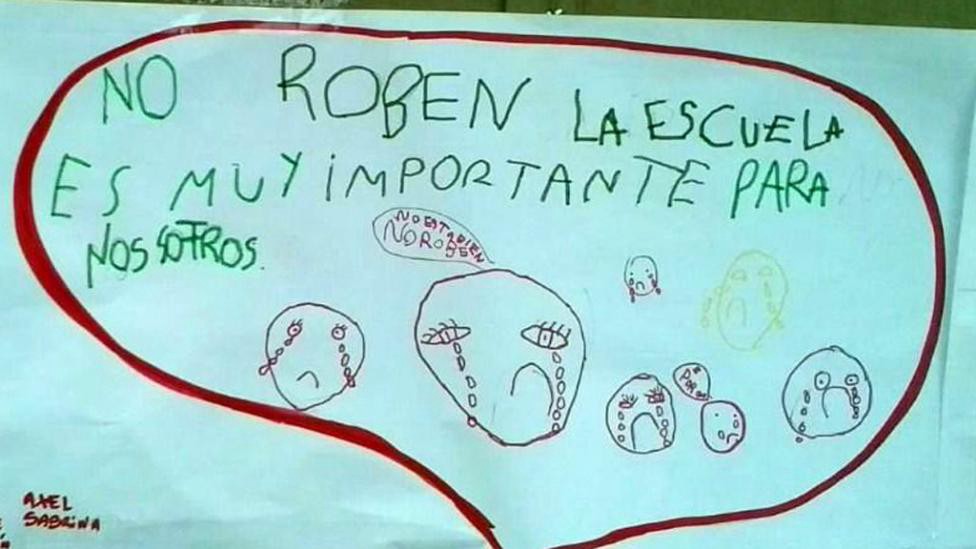 NO ROBEN LA ESCUELA
ES MUY IMPORTANTE PARA
NOSSOTROS.
NO EST BIEN
NO ROBEN
AXEL
SABRINA